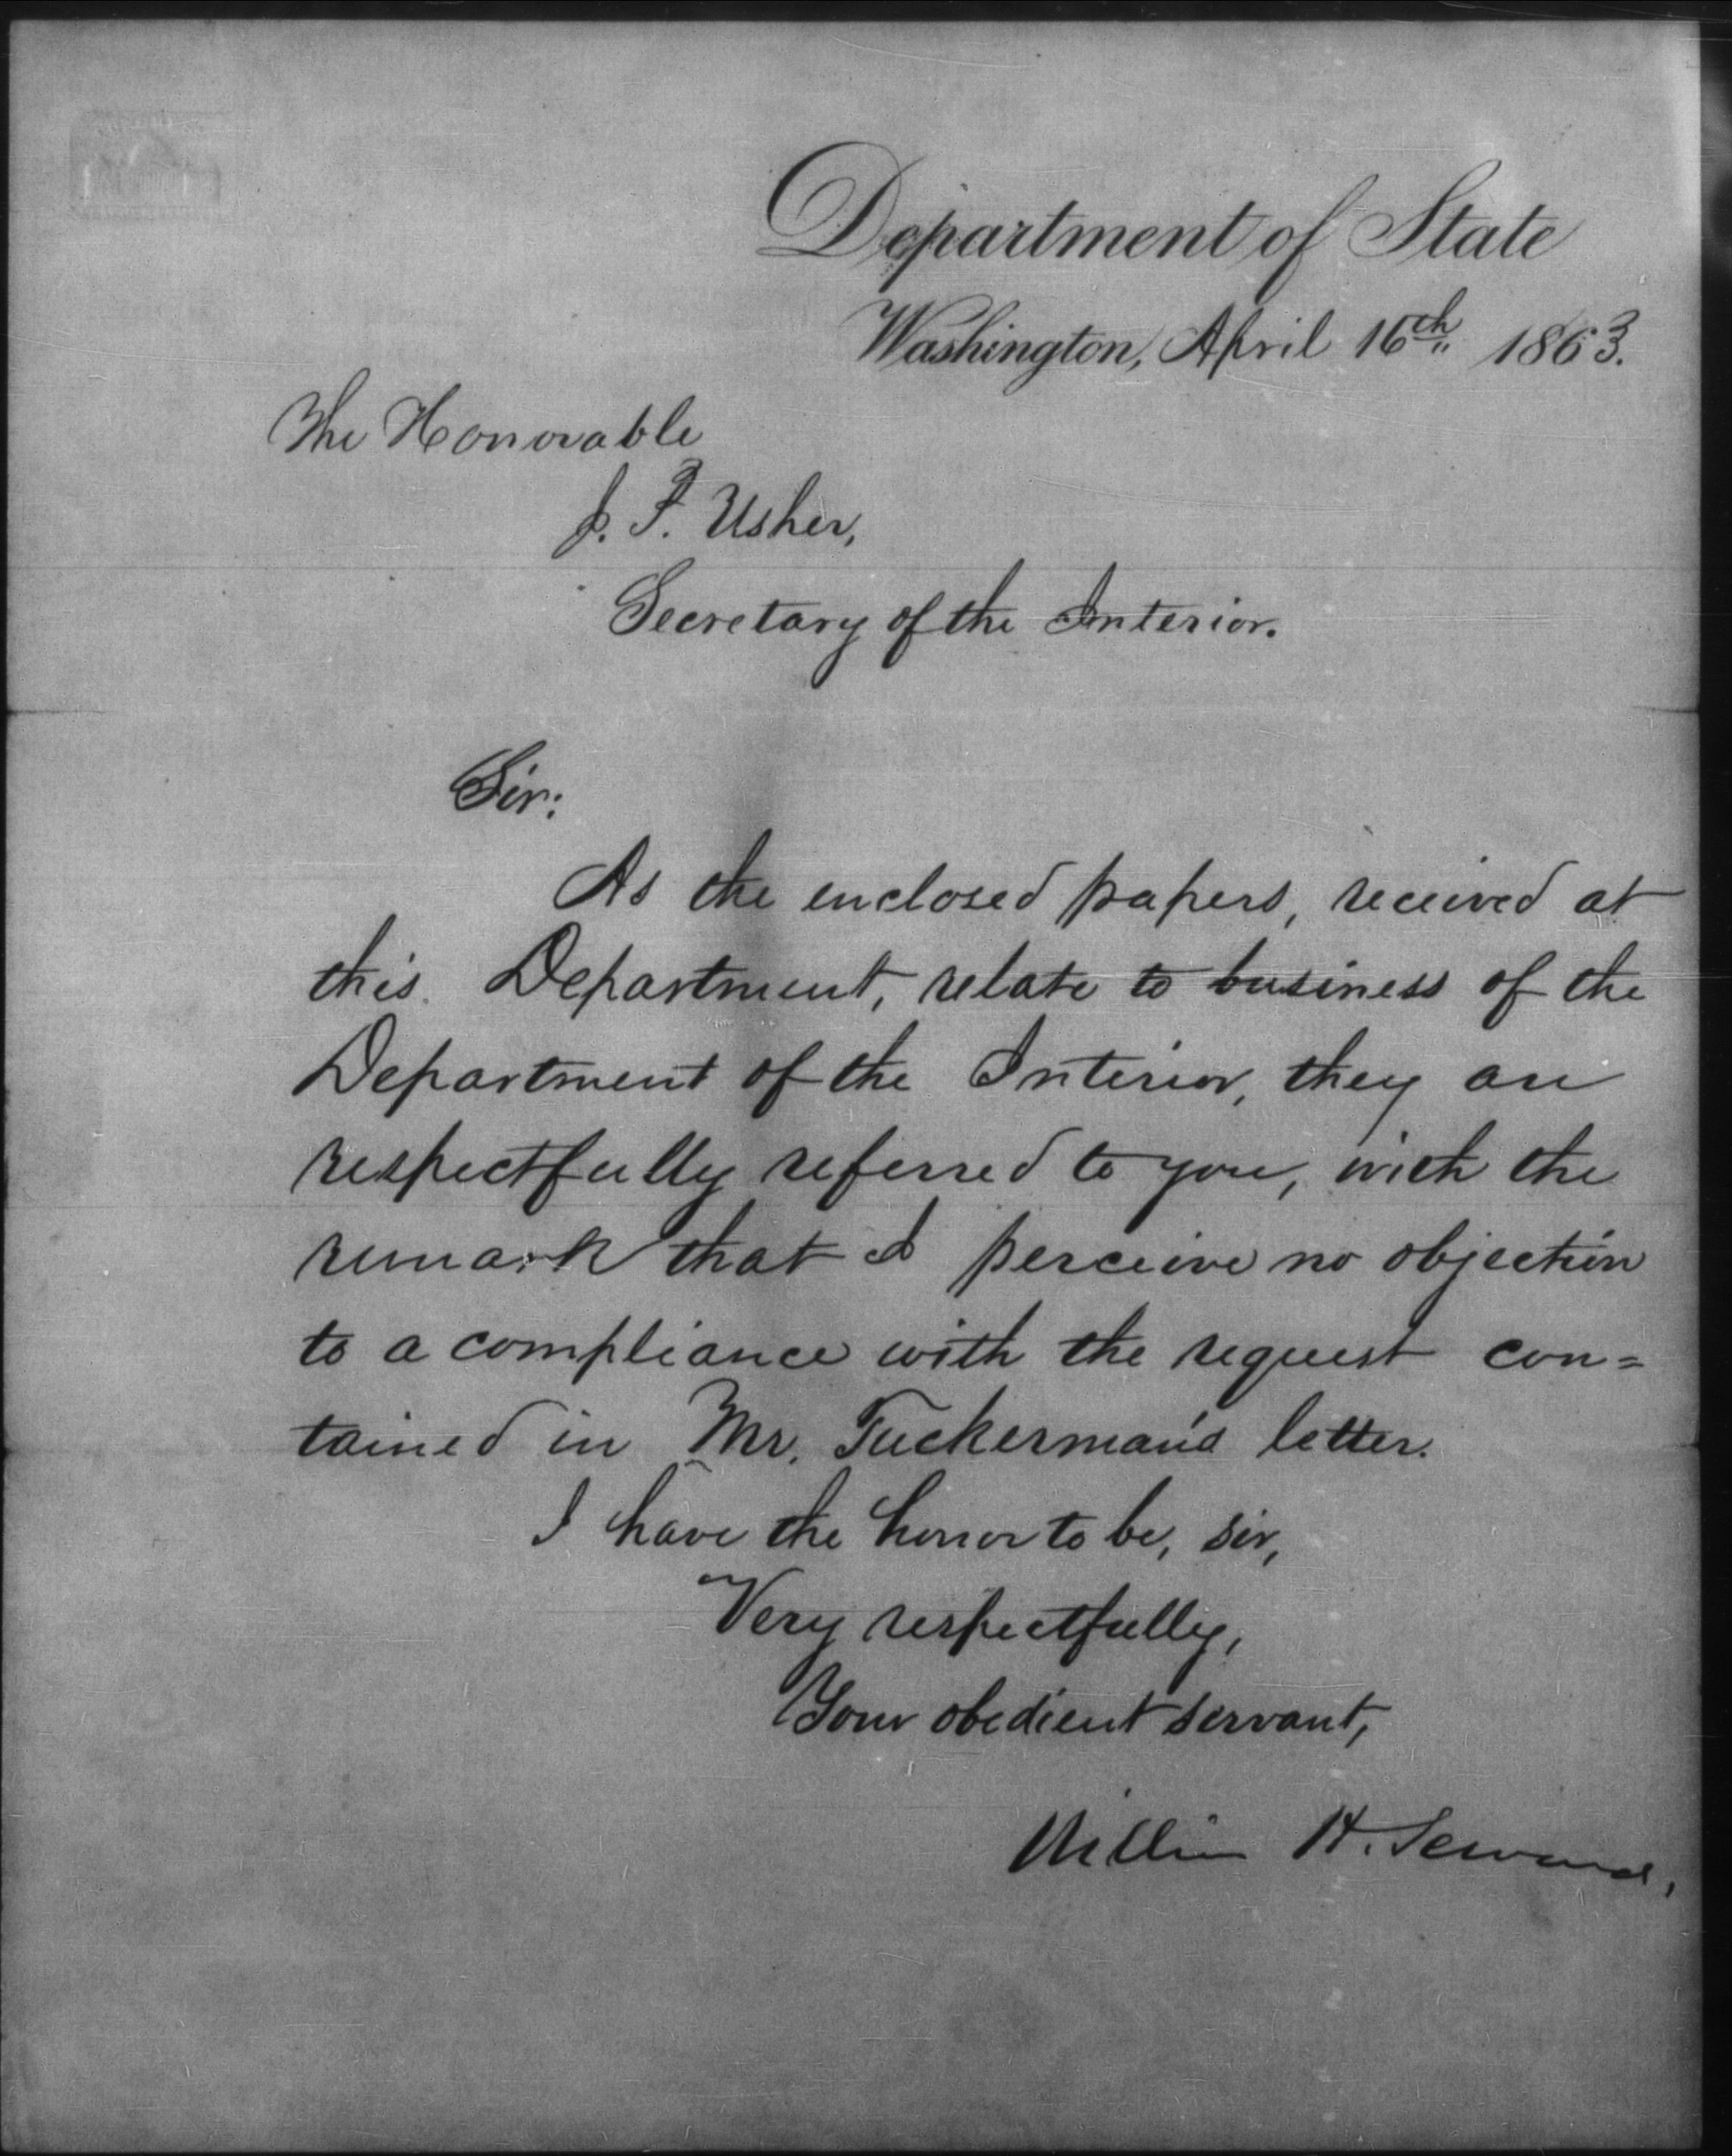 Department of State
Washington, April 16th 1863.
The Honorable
J. P. Usher,
Secretary of the Interior.
Sir:
As the enclosed papers, received at
this Department, relate to business of the
Department of the Interior, they are
respectfully referred to you, with the
remark that I perceive no objection
to a compliance with the request con=
tained in Mr. Tuckerman's letter.
I have the honor to be, sir,
Very respectfully,
Your obedient servant,
William H. Seward,